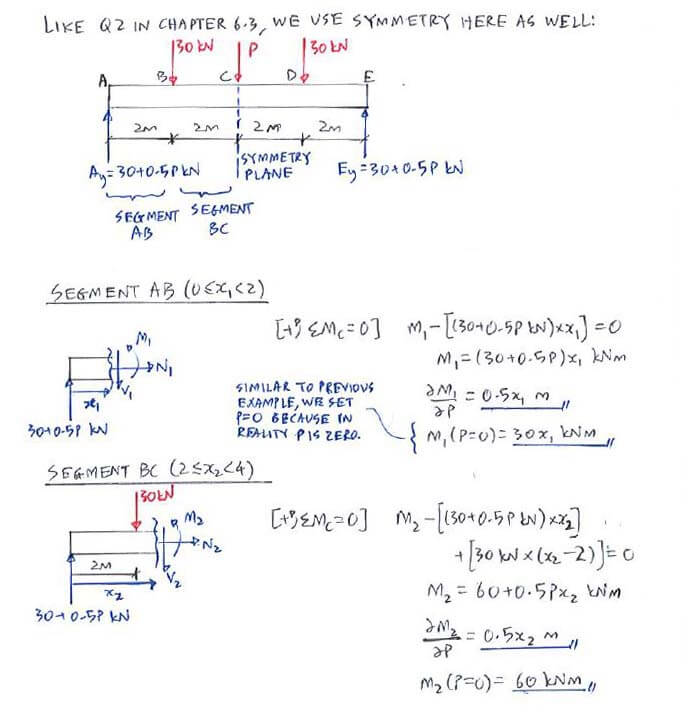 LIKE Q2 IN CHAPTER 6.3, WE USE SYMMETRY HERE AS WELL:
30 kN P 30 kN
A B C D E
2M 2M 2M 2M
Ay=30+0.5P kN SYMMETRY PLANE Ey=30+0.5P kN
SEGMENT AB SEGMENT BC
SEGMENT AB (0≤x₁<2)
[+↻ ΣMc=0] M₁-[(30+0.5P kN)×x₁]=0
M₁=(30+0.5P)x₁ kNm
M₁
N₁
V₁
x₁
30+0.5P kN
SIMILAR TO PREVIOUS
EXAMPLE, WE SET
P=0 BECAUSE IN
REALITY P IS ZERO.
∂M₁/∂P = 0.5x₁ m
M₁(P=0)=30x₁ kNm
SEGMENT BC (2≤x₂<4)
30kN
M₂
N₂
V₂
2M
x₂
30+0.5P kN
[+↻ ΣMc=0] M₂-[(30+0.5P kN)×x₂]
+[30 kN×(x₂-2)]=0
M₂=60+0.5Px₂ kNm
∂M₂/∂P = 0.5x₂ m
M₂(P=0)=60 kNm